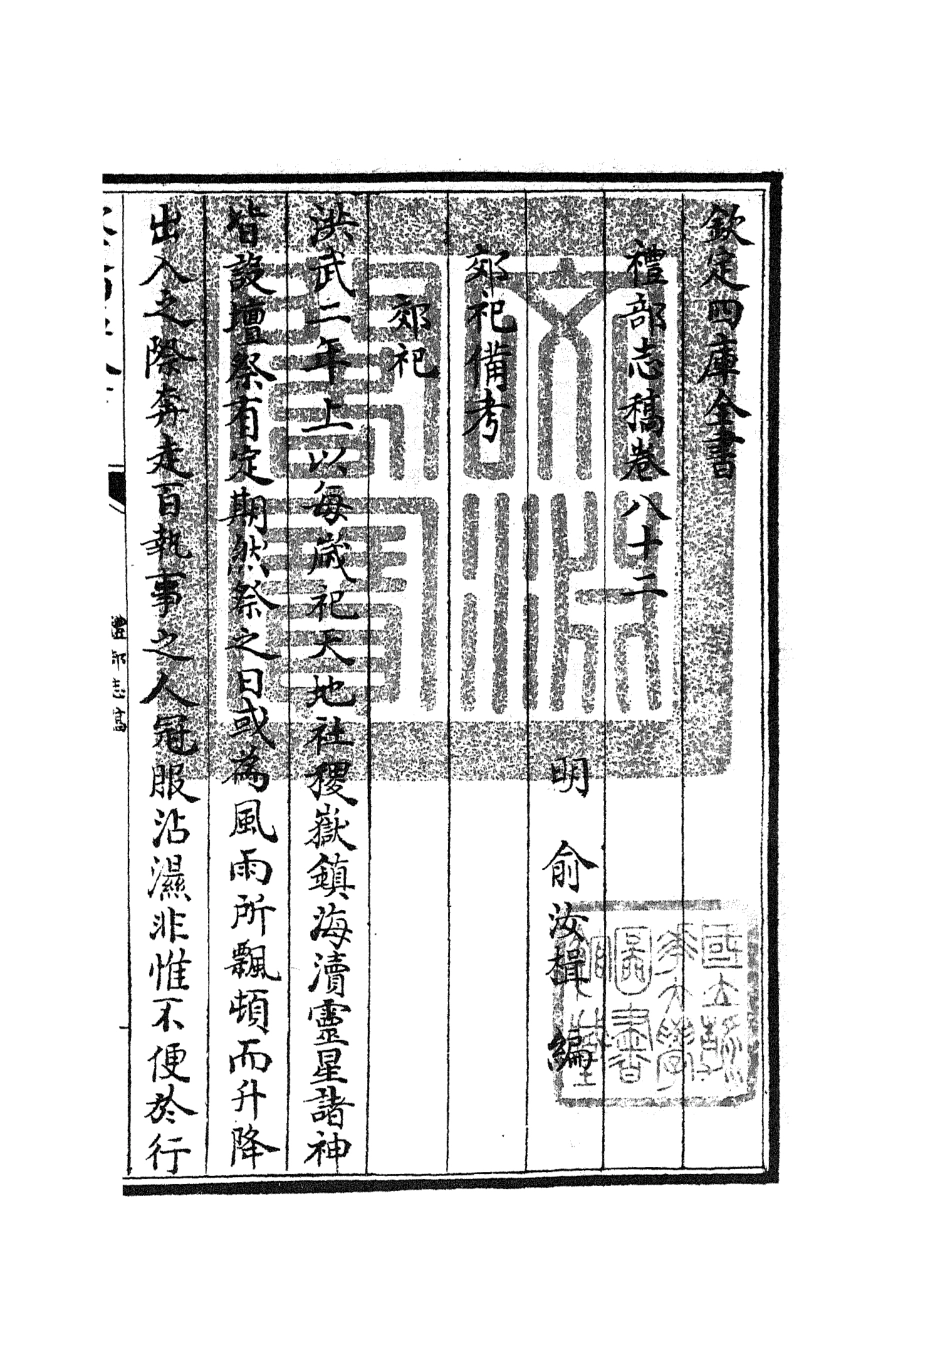 欽定四庫全書
禮部志稿卷八十二
明 俞汝楫 編
郊祀備考
郊祀
洪武二年上以每歲祀天地社稷嶽鎮海瀆靈星諸神
皆設壇祭有定期然祭之日或為風雨所飄頓而升降
出入之際奔走百執事之人冠服沾濕非惟不便於行
禮部志稿